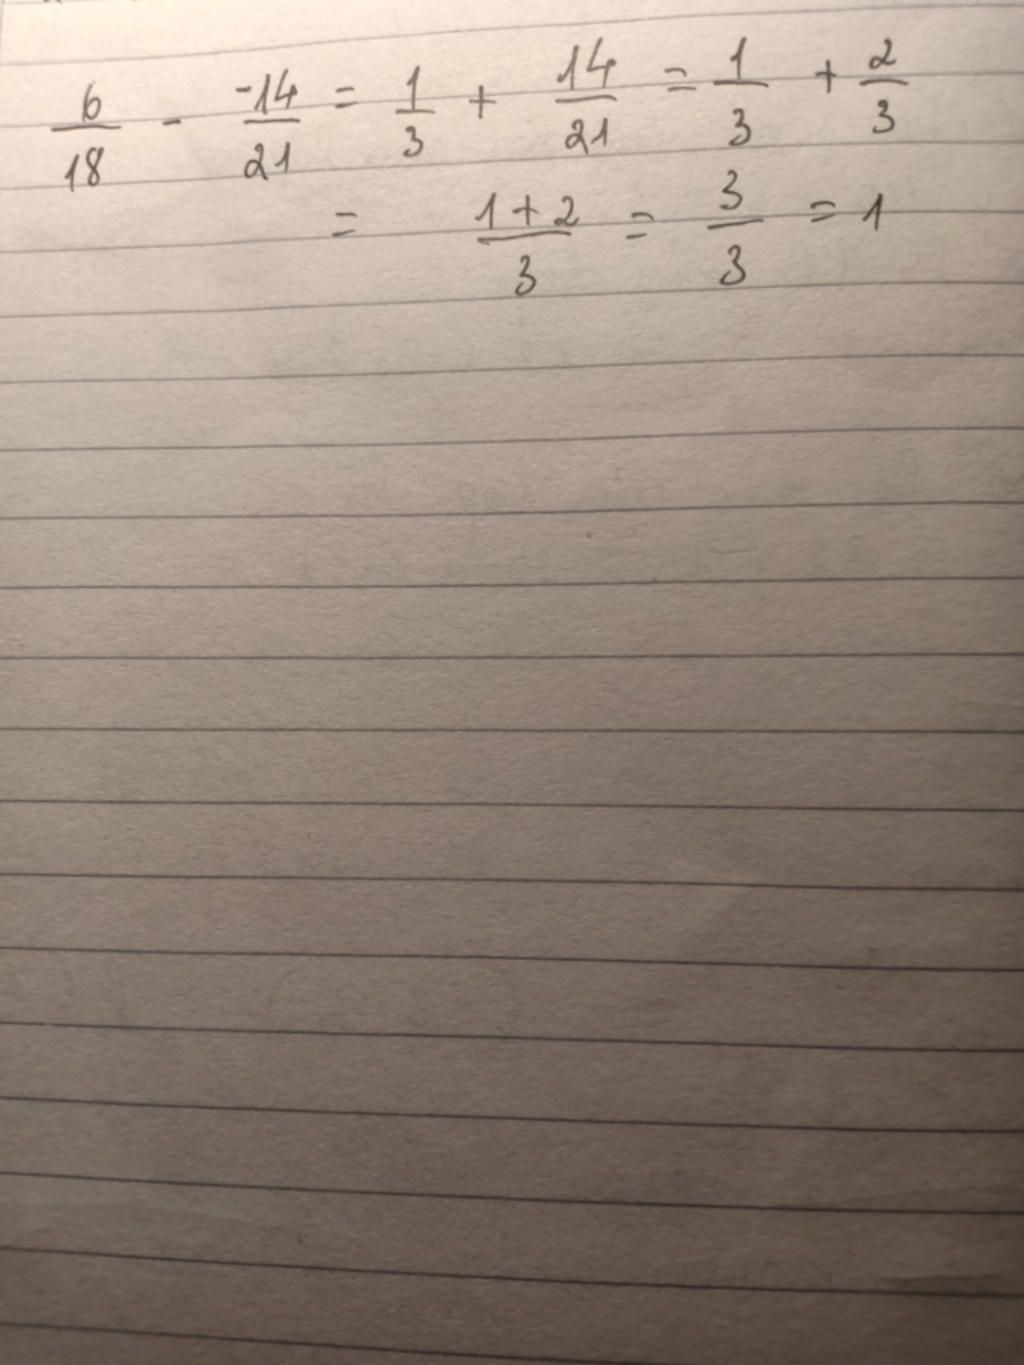 6/18 - -14/21 = 1/3 + 14/21 = 1/3 + 2/3
= 1+2/3 = 3/3 = 1